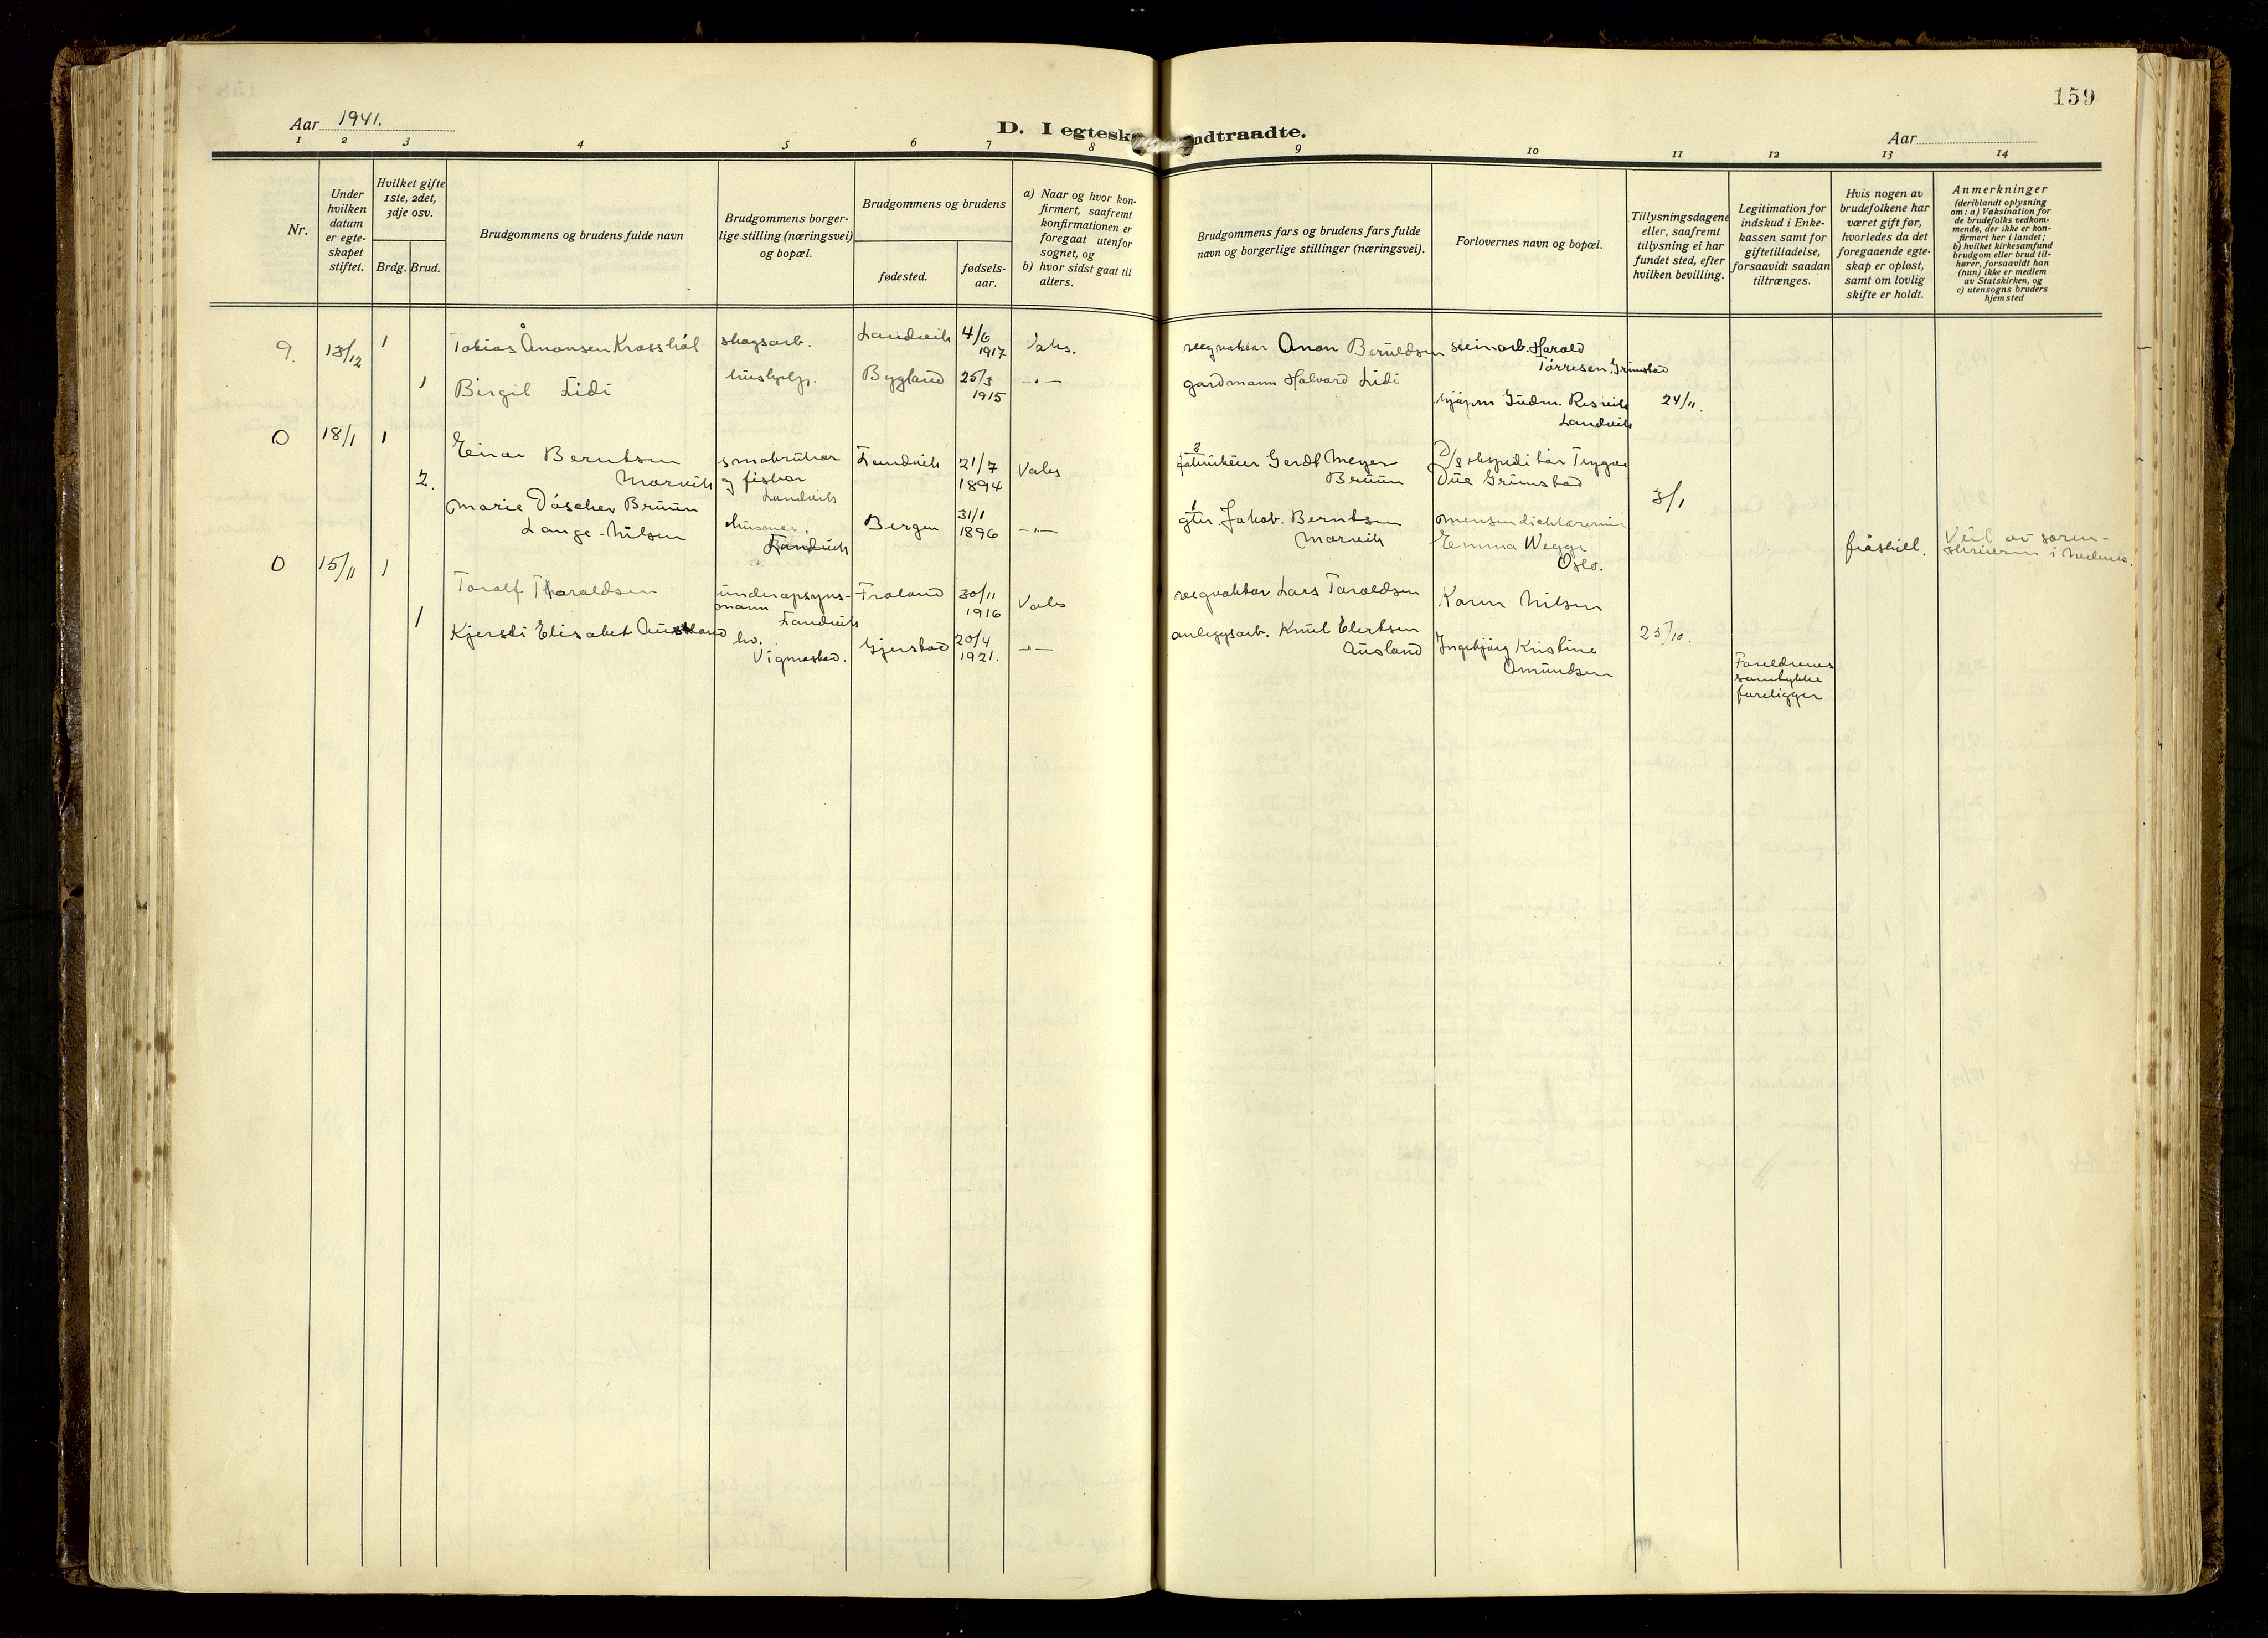 159
Aar 1941.
D. I egtesk ndtraadte.
Aar
1 2 3 4 5 6 7 8 9 10 11 12 13 14
Nr.
Under
hvilken
datum
er egte-
skapet
stiftet.
Hvilket gifte
1ste, 2det,
3dje osv.
Brdg. Brud.
Brudgommens og brudens fulde navn
Brudgommens borger-
lige stilling (næringsvei)
og bopæl.
Brudgommens og brudens
fødested.
fødsels-
aar.
a) Naar og hvor kon-
firmert, saafremt
konfirmationen er
foregaat utenfor
sognet, og
b) hvor sidst gaat til
alters.
Brudgommens fars og brudens fars fulde
navn og borgerlige stillinger (næringsvei).
Forlovernes navn og bopæl.
Tillysningsdagene
eller, saafremt
tillysning ei har
fundet sted, efter
hvilken bevilling.
Legitimation for
indskud i Enke-
kassen samt for
giftetilladelse,
forsaavidt saadan
tiltrænges.
Hvis nogen av
brudefolkene har
været gift før,
hvorledes da det
foregaaende egte-
skap er opløst,
samt om lovlig
skifte er holdt.
Anmerkninger
(deriblandt oplysning
om: a) Vaksination for
de brudefolks vedkom-
mende, der ikke er kon-
firmert her i landet;
b) hvilket kirkesamfund
brudgom eller brud til-
hører, forsaavidt han
(hun) ikke er medlem
av Statskirken, og
c) utensogns bruders
hjemsted
9. 13/12 1
Tobias Ånonsen Krosshål
skogsarb.
Landvik
4/6
1917
1
Birgit Lidi
hushjelp.
Bygland
25/3
1915
-"-
Anon Beruldsen
gardmann Halvard Lidi
steinarb. Harald
Tørresen, Grimstad
Gudm. Resvik
Landvik
24/11.
0 18/1 1
Einar Berntsen
Morvik
småbrukar
og fiskar
Landvik
Landvik
21/7
1894
Vaks
2.
Marie Döscher Bruun
Lange-Nilsen
husmor.
Landvik
Bergen
31/1
1896
-"-
2
Gerdt Meyer
Bruun
1
Jakob Berntsen
Morvik
D/s ekspeditør Trygve
Due Grimstad
Emma Wegge
Oslo.
3/1
fråskilt.
Veil av soren-
skriveren i Nedenes.
0 15/11 1
Toralf Tharaldsen
underopsyns-
mann
Landvik
Froland
30/11
1916
Vaks
1
Kjersti Elisabet Ausland
hv.
Vigmostad.
Gjerstad
20/4
1921.
-"-
vegvaktar Lars Taraldsen
anleggsarb. Knut Elertsen
Ausland
Karen Nilsen
Ingebjørg Kristine
Omundsen
25/10.
Foreldrenes
samtykke
foreligger